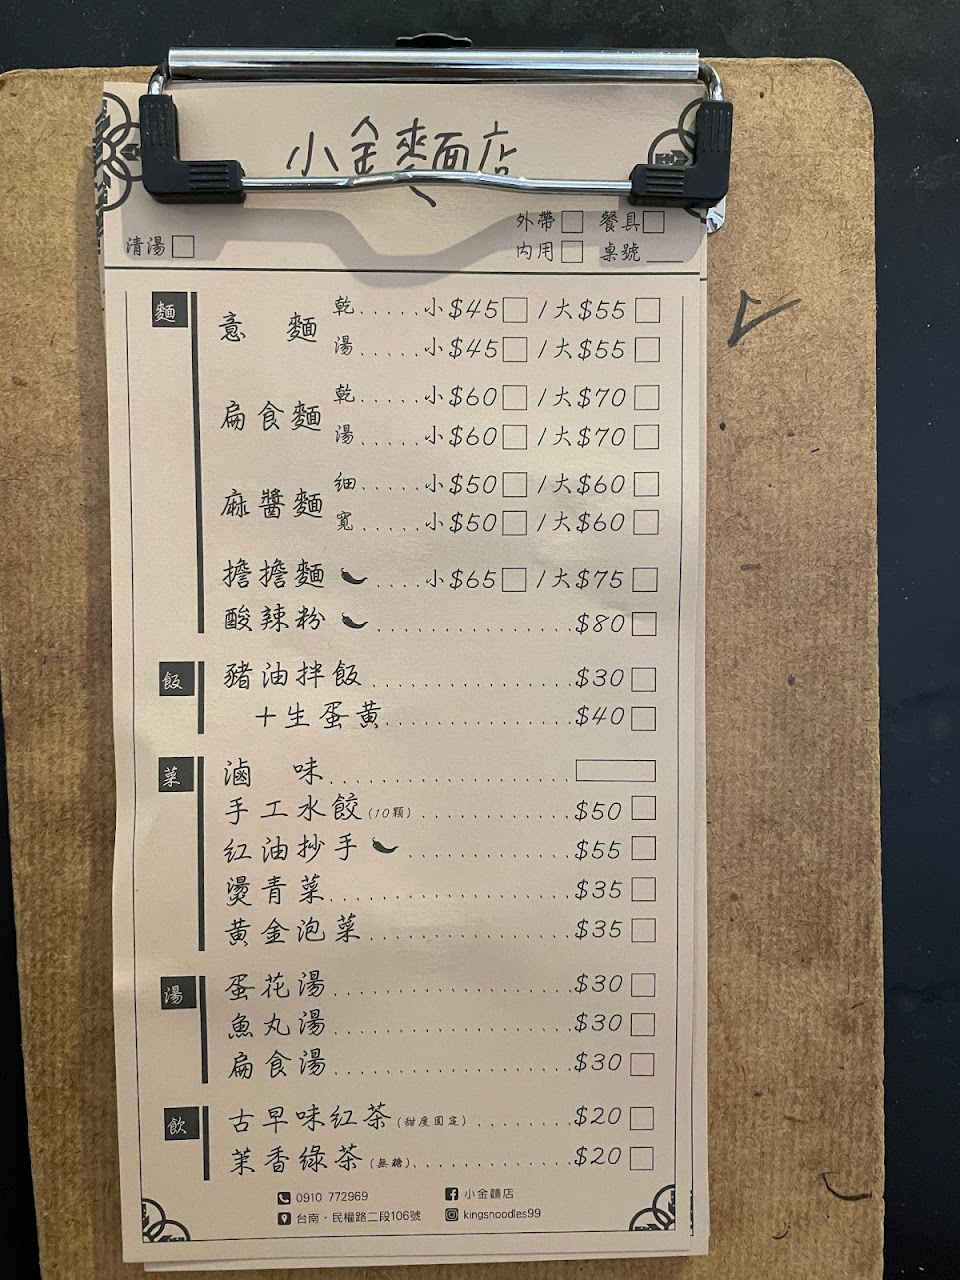 小金麵店
外帶□ 餐具□
清湯□ 內用□ 桌號____
麵
意 麵 乾.....小$45□/大$55□
湯.....小$45□/大$55□
扁食麵 乾.....小$60□/大$70□
湯.....小$60□/大$70□
麻醬麵 細.....小$50□/大$60□
寬.....小$50□/大$60□
擔擔麵 ....小$65□/大$75□
酸辣粉 ................$80□
飯
豬油拌飯................$30□
+生蛋黃................$40□
菜
滷 味....................
手工水餃(10顆)..............$50□
紅油抄手 ..............$55□
燙青菜....................$35□
黃金泡菜................$35□
湯
蛋花湯....................$30□
魚丸湯....................$30□
扁食湯....................$30□
飲
古早味紅茶(甜度固定)........$20□
茉香綠茶(無糖).............$20□
0910 772969 小金麵店
台南・民權路二段106號 kingsnoodles99